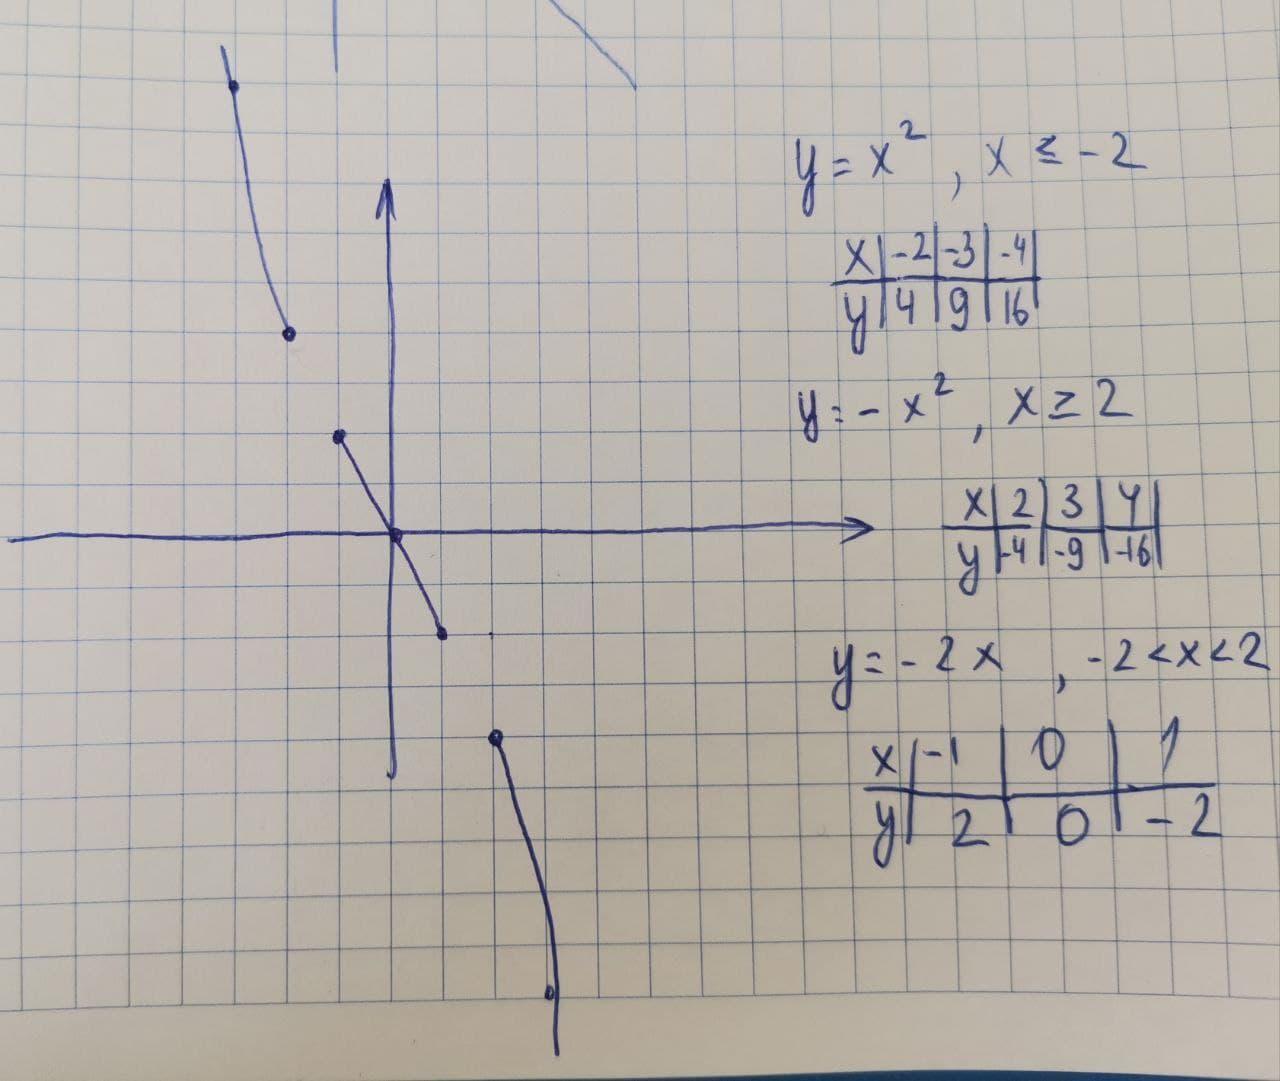 y = x² , x ≤ -2
x | -2 | -3 | -4 |
y | 4 | 9 | 16 |
y = - x² , x ≥ 2
x | 2 | 3 | 4 |
y | -4 | -9 | -16 |
y = - 2 x , -2 < x < 2
x | -1 | 0 | 1
y | 2 | 0 | - 2